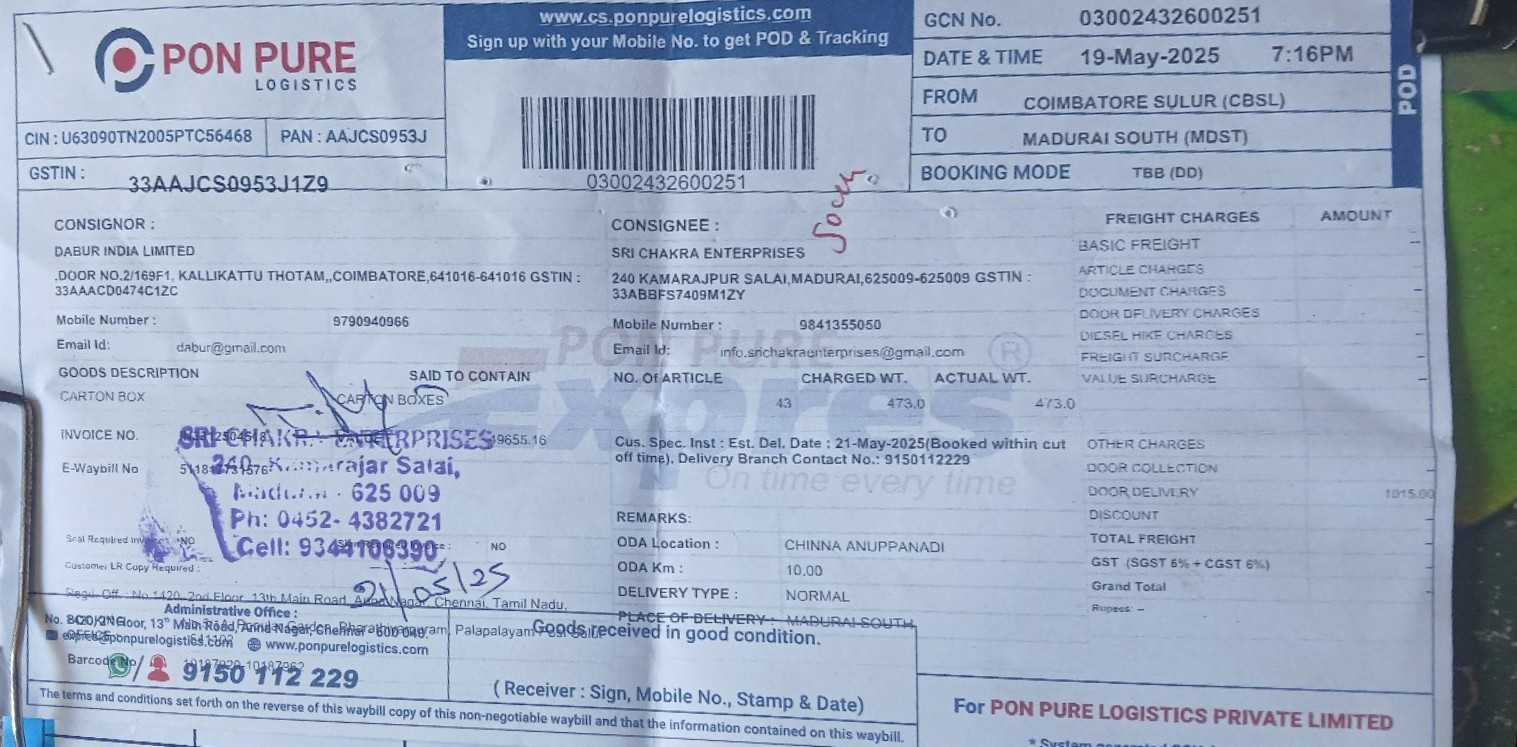 PON PURE
LOGISTICS
www.cs.ponpurelogistics.com
Sign up with your Mobile No. to get POD & Tracking
GCN No. 03002432600251
DATE & TIME 19-May-2025 7:16PM
FROM COIMBATORE SULUR (CBSL)
TO MADURAI SOUTH (MDST)
BOOKING MODE TBB (DD)
POD
CIN : U63090TN2005PTC56468 PAN : AAJCS0953J
GSTIN : 33AAJCS0953J1Z9
03002432600251
CONSIGNOR :
DABUR INDIA LIMITED
,DOOR NO.2/169F1, KALLIKATTU THOTAM,,COIMBATORE,641016-641016 GSTIN :
33AAACD0474C1ZC
Mobile Number : 9790940966
Email Id: dabur@gmail.com
GOODS DESCRIPTION SAID TO CONTAIN
CARTON BOX CARTON BOXES
INVOICE NO. 49655.16
E-Waybill No
SRI CHAKRA ENTERPRISES
240, Kamarajar Salai,
Madurai - 625 009
Ph: 0452- 4382721
Cell: 9344106390
21/05/25
Seal Required NO
NO
Customer LR Copy Required :
CONSIGNEE :
SRI CHAKRA ENTERPRISES
240 KAMARAJPUR SALAI,MADURAI,625009-625009 GSTIN :
33ABBFS7409M1ZY
Mobile Number : 9841355050
Email Id: info.srichakraenterprises@gmail.com
NO. Of ARTICLE CHARGED WT. ACTUAL WT.
43 473.0 473.0
PON PURE
Expres
On time every time
Cus. Spec. Inst : Est. Del. Date : 21-May-2025(Booked within cut
off time), Delivery Branch Contact No.: 9150112229
REMARKS:
ODA Location : CHINNA ANUPPANADI
ODA Km : 10.00
DELIVERY TYPE : NORMAL
PLACE OF DELIVERY : MADURAI SOUTH
Goods received in good condition.
(Receiver : Sign, Mobile No., Stamp & Date)
FREIGHT CHARGES AMOUNT
BASIC FREIGHT --
ARTICLE CHARGES --
DOCUMENT CHARGES --
DOOR DELIVERY CHARGES
DIESEL HIKE CHARGES
FREIGHT SURCHARGE
VALUE SURCHARGE
OTHER CHARGES
DOOR COLLECTION
DOOR DELIVERY 1015.00
DISCOUNT
TOTAL FREIGHT
GST (SGST 6% + CGST 6%)
Grand Total
Rupees: --
Regd. Off. : No.1420, 2nd Floor, 13th Main Road, Anna Nagar, Chennai, Tamil Nadu,
Administrative Office :
Floor, 13th Main Road, Anna Nagar, Chennai - 600 040
www.ponpurelogistics.com
Barcode No
9150 112 229
The terms and conditions set forth on the reverse of this waybill copy of this non-negotiable waybill and that the information contained on this waybill.
For PON PURE LOGISTICS PRIVATE LIMITED